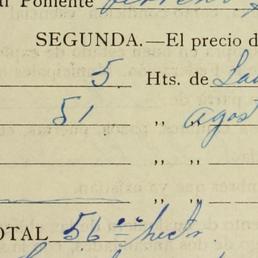 Poniente
SEGUNDA.—El precio d
5 Hts. de
51 " " agost
" "
" "
OTAL 56 00 hect